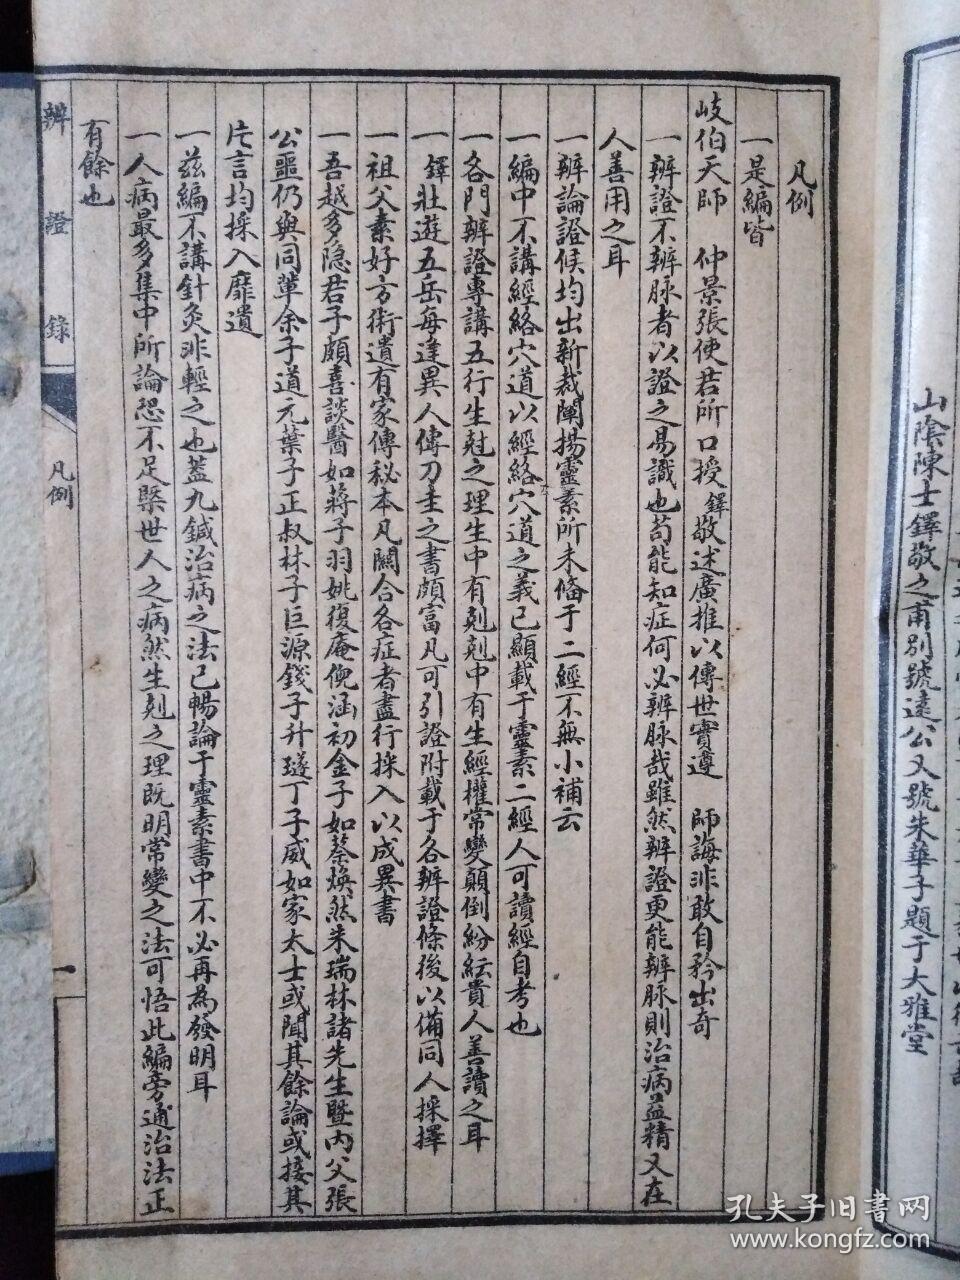 山陰陳士鐸敬之甫別號遠公又號朱華子題于大雅堂
凡例
一是編皆
岐伯天師　仲景張使君所口授鐸敬述廣推以傳世實遵　師誨非敢自矜出奇
一辨證不辨脉者以證之易識也苟能知症何必辨脉哉雖然辨證更能辨脉則治病益精又在
人善用之耳
一辨論證候均出新裁闡揚靈素所未備于二經不無小補云
一編中不講經絡穴道以經絡穴道之義已顯載于靈素二經人可讀經自考也
一各門辨證專講五行生尅之理生中有剋剋中有生經權常變顛倒紛紜貴人善讀之耳
一鐸壯遊五岳每逢異人傳刀圭之書頗富凡可引證附載于各辨證條後以備同人採擇
一祖父素好方術遺有家傳秘本凡關合各症者盡行採入以成異書
一吾越多隐君子頗喜談醫如蔣子羽姚復庵倪涵初金子如蔡煥然朱瑞林諸先生暨內父張
公噩仍與同輩余子道元葉子正叔林子巨源錢子升璲丁子威如家太士或聞其餘論或接其
片言均採入靡遺
一茲編不講針灸非輕之也蓋九鍼治病之法已暢論于靈素書中不必再為發明耳
一人病最多集中所論恐不足槩世人之病然生剋之理既明常變之法可悟此編旁通治法正
有餘也
辨證錄
凡例
一
孔夫子旧書网
www.kongfz.com